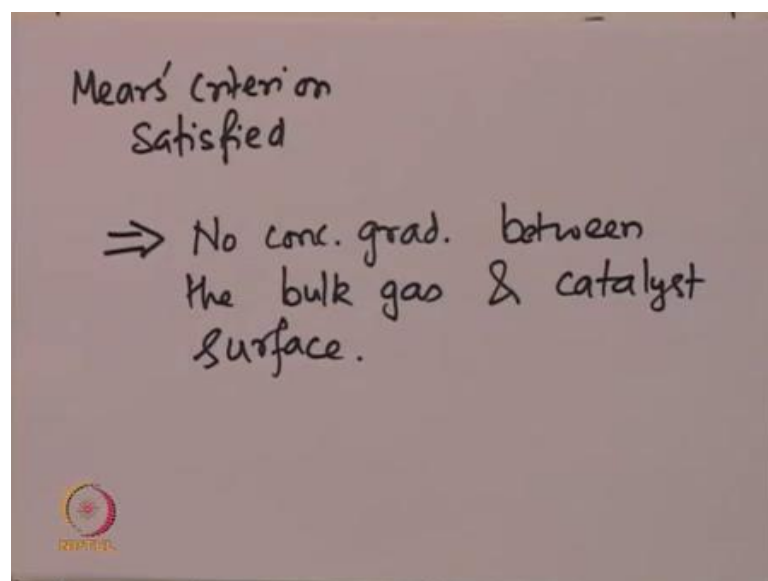 Mears' Criterion
Satisfied
⇒ No conc. grad. between
the bulk gas & catalyst
surface.
NPTEL